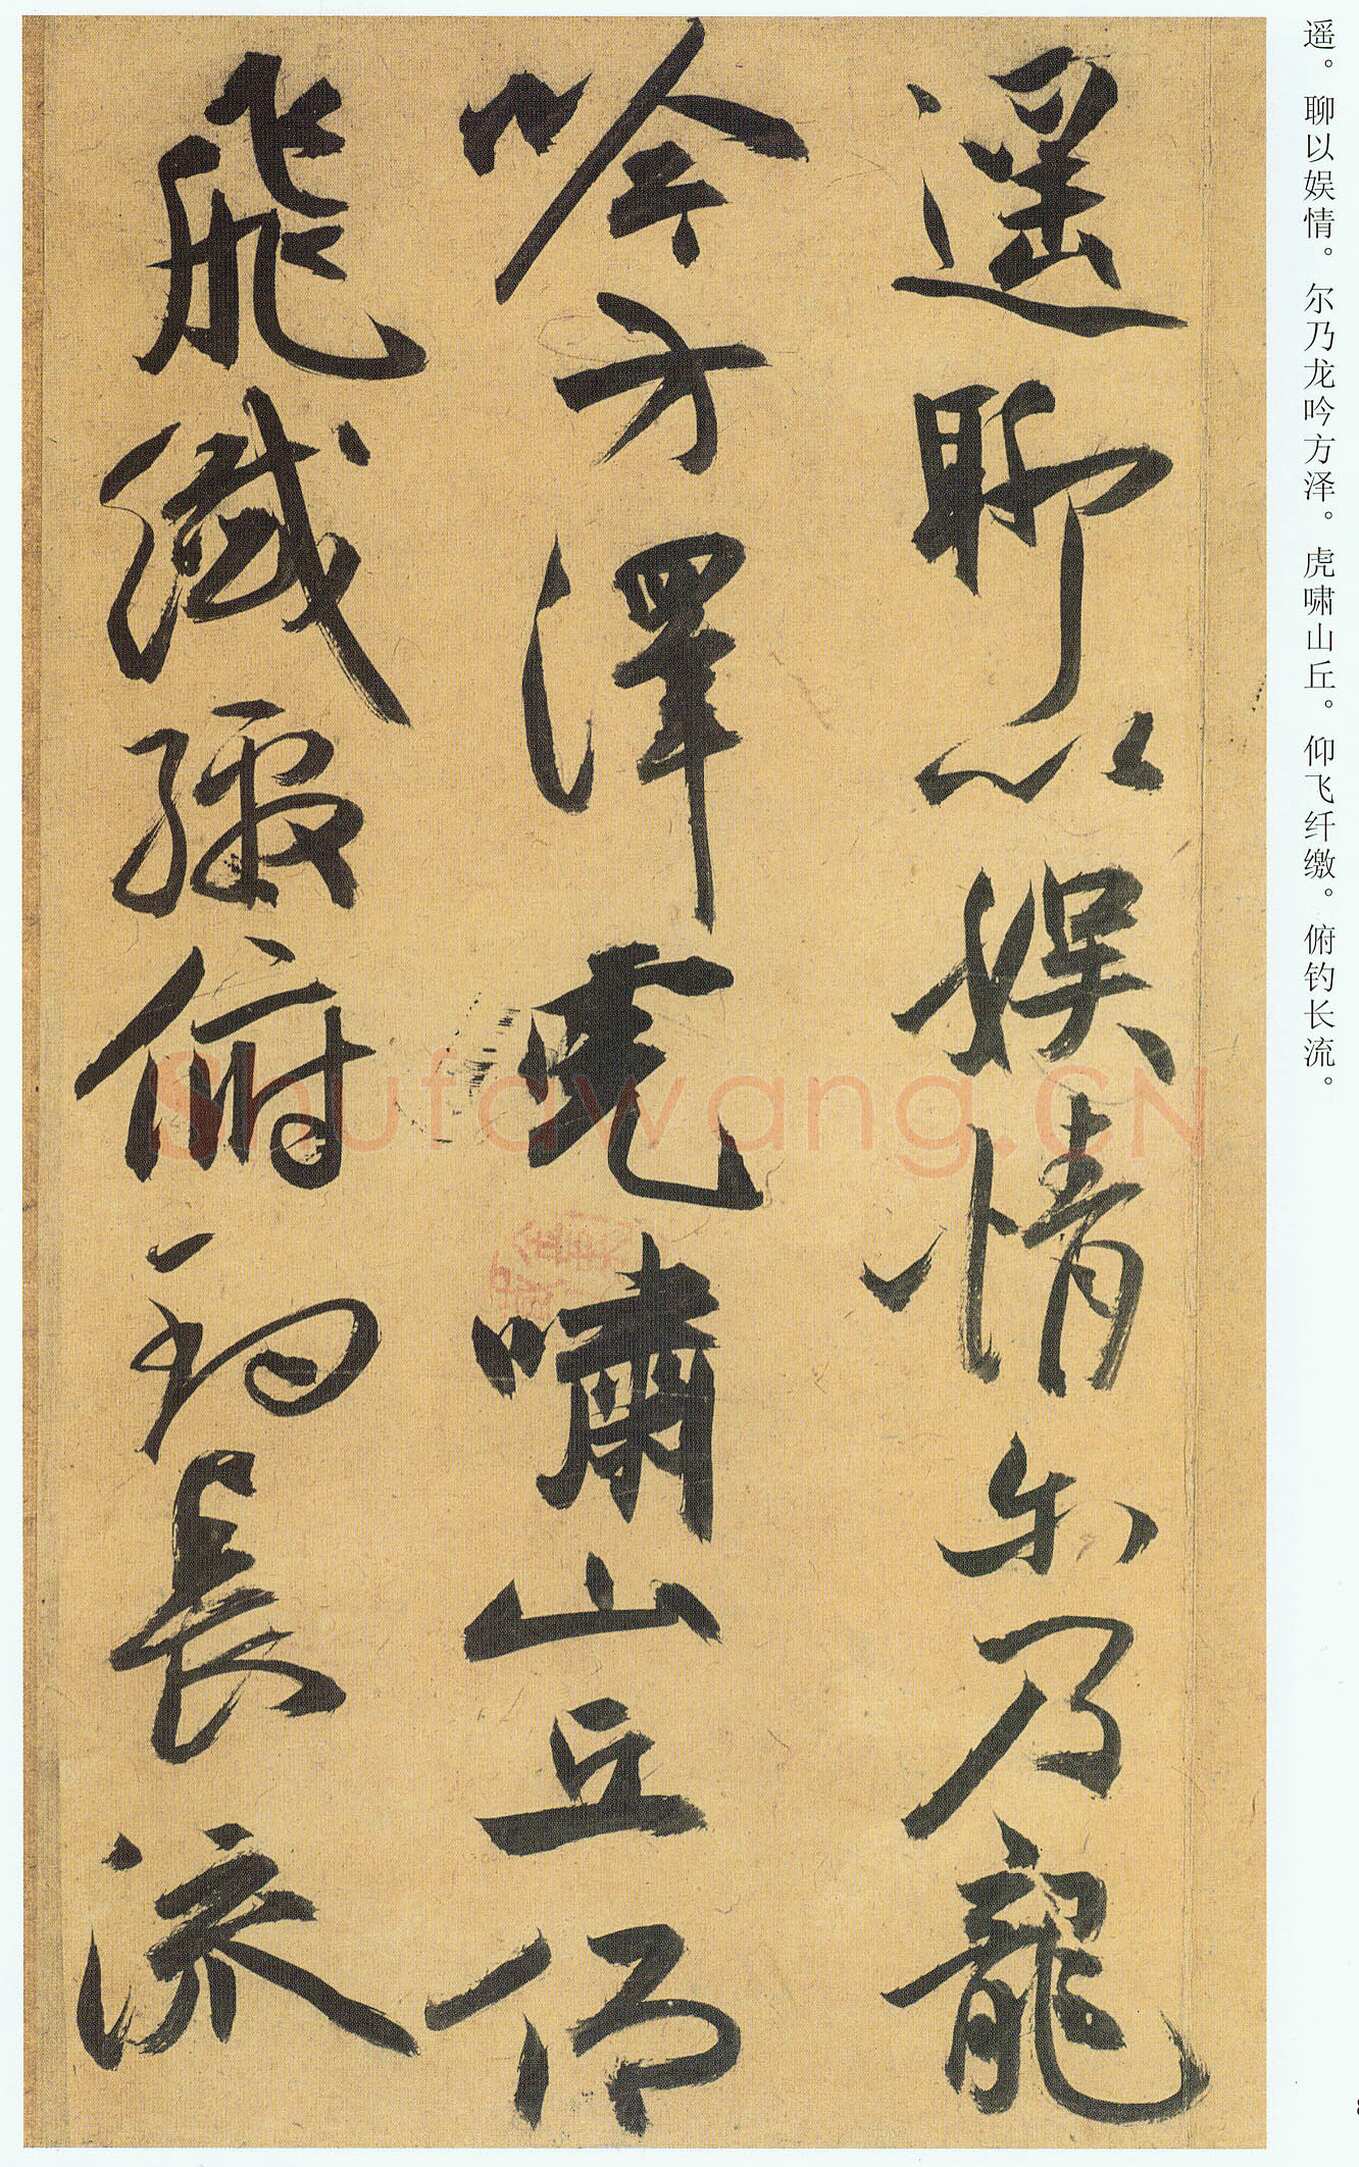 遥。聊以娱情。尔乃龙吟方泽。虎啸山丘。仰飞纤缴。俯钓长流。
遥聊以娱情尔乃龍
吟方澤虎嘯山丘仰
飛纖繳俯钓長流
Shufawang.CN